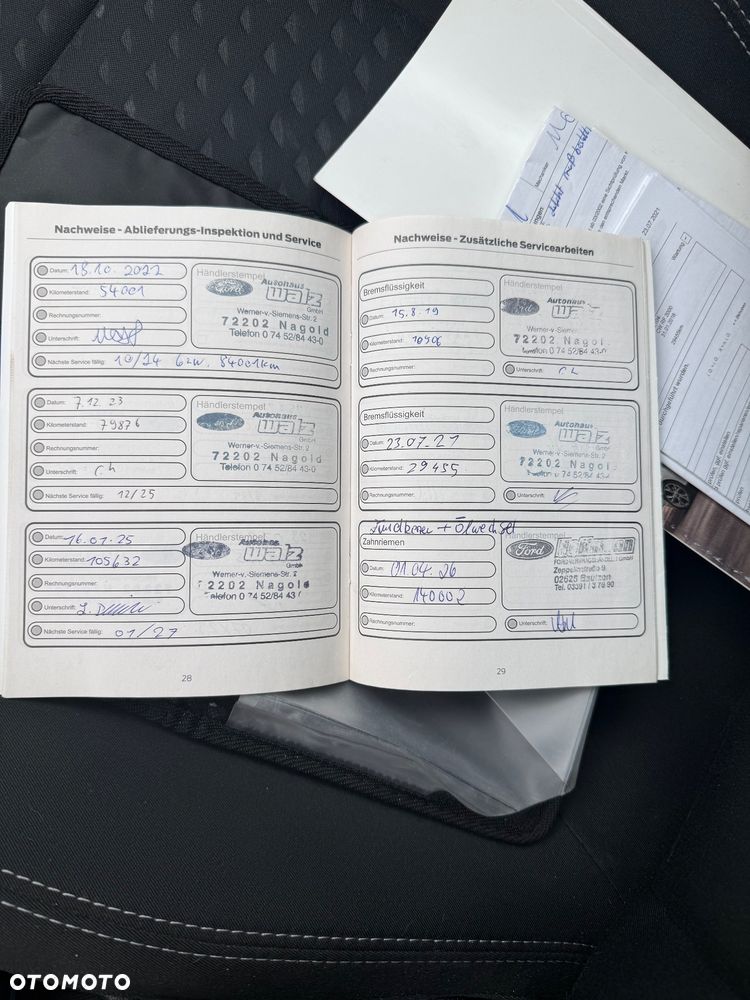 Nachweise - Ablieferungs-Inspektion und Service
Datum: 18.10.2022
Kilometerstand: 54001
Rechnungsnummer:
Unterschrift:
Nächste Service fällig: 10/24 bzw. 84001km
Händlerstempel
Ford
Autohaus
walz
GmbH
Werner-v.-Siemens-Str. 2
72202 Nagold
Telefon 0 74 52/84 43-0
Datum: 7.12.23
Kilometerstand: 79876
Rechnungsnummer:
Unterschrift:
Nächste Service fällig: 12/25
Händlerstempel
Autohaus
walz
GmbH
Werner-v.-Siemens-Str. 2
72202 Nagold
Telefon 0 74 52/84 43-0
Datum: 16.01.25
Kilometerstand: 105632
Rechnungsnummer:
Unterschrift:
Nächste Service fällig: 01/27
Händlerstempel
Autohaus
walz
GmbH
Werner-v.-Siemens-Str.
2202 Nagold
elefon 0 74 52/84 43
28
Nachweise - Zusätzliche Servicearbeiten
Bremsflüssigkeit
Datum: 15.8.19
Kilometerstand:
Rechnungsnummer:
Händlerstempel
Autohaus
walz
Werner-v.-Siemens-Str. 2
72202 Nagol
0 74 52/84 43-0
Unterschrift:
Bremsflüssigkeit
Datum: 23.07.21
Kilometerstand: 29455
Rechnungsnummer:
Händlerstempel
Autohaus
walz
GmbH
Werner-v.-Siemens-Str. 2
72202 Nagold
Telefon 0 74 52/84 43-0
Unterschrift:
Zündkerzen + Ölwechsel
Zahnriemen
Datum: 01.04.26
Kilometerstand: 140002
Rechnungsnummer:
Händlerstempel
Ford
02625 Bautzen
Unterschrift:
29
23.07.2021
Wartung
OTOMOTO